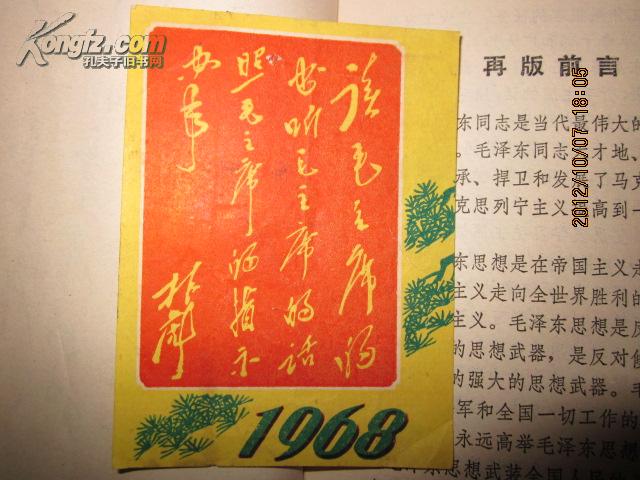 Kongfz.com
孔夫子旧书网
读毛主席的
书听毛主席的话
照毛主席的指示
办事
林彪
1968
再版前言
东同志是当代最伟大的
。毛泽东同志 才地、
承、捍卫和发展了马克
克思列宁主义 高到一
东思想是在帝国主义走
主义走向全世界胜利的
主义。毛泽东思想是反
的思想武器，是反对修
的强大的思想武器。毛
军和全国一切工作的
永远高举毛泽东思想
泽东思想武装全国人民的
2012/10/07 18:05